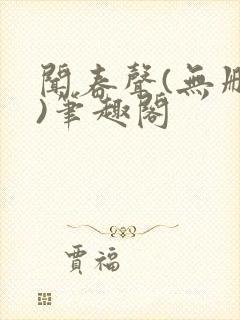 聞春聲(無刪
)筆趣閣
賈福